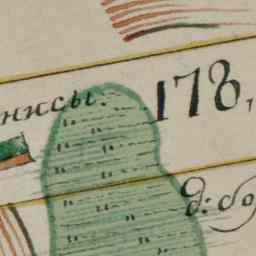 нисы. 178,
д: бо